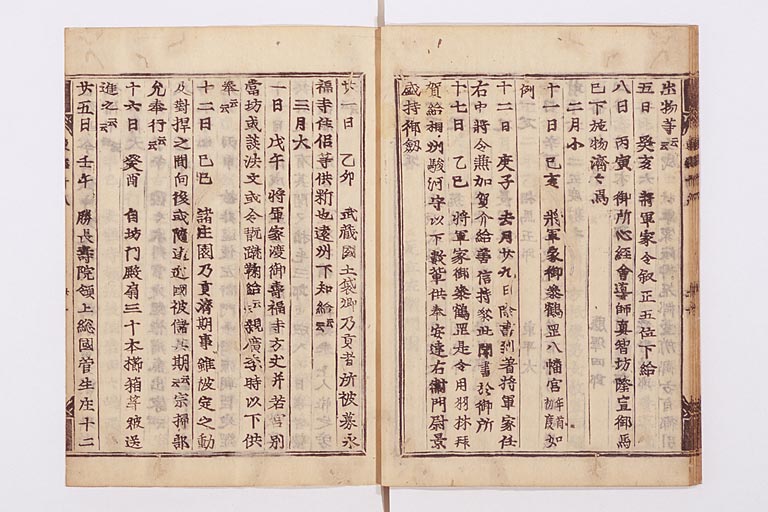 出物等云云
五日　癸亥　將軍家令叙正五位下給
八日　丙寅　御所心經會導師眞智坊隆宣御馬
已下施物濟々焉
二月小
十一日　己亥　將軍家御參鶴罡八幡宮年首初度如
例
十二日　庚子　去月廿九日除書到著將軍家任
右中將令兼加賀介給善信持參此聞書於御所
十七日　乙巳　將軍家御參鶴罡是令用羽林拜
賀給相州駿河守以下數輩供奉安達右衛門尉景
盛持御劔
廿一日　乙卯　武藏國土袋郷乃貢者所被募永
福寺住侶等供料也遠州下知給云云
三月大
一日　戊午　將軍家渡御壽福寺方丈并若宮別
當坊或談法文或令翫蹴鞠給云云親廣時以下供
奉云云
十二日　己巳　諸庄園乃貢濟期事雖被定之動
及對捍之間向後或隨遠近國被儲其期云云宗掃部
允奉行云云
十六日　癸酉　自坊門殿扇三十本櫛箱等被送
進之云云
廿五日　壬午　勝長壽院領上總國菅生庄十二